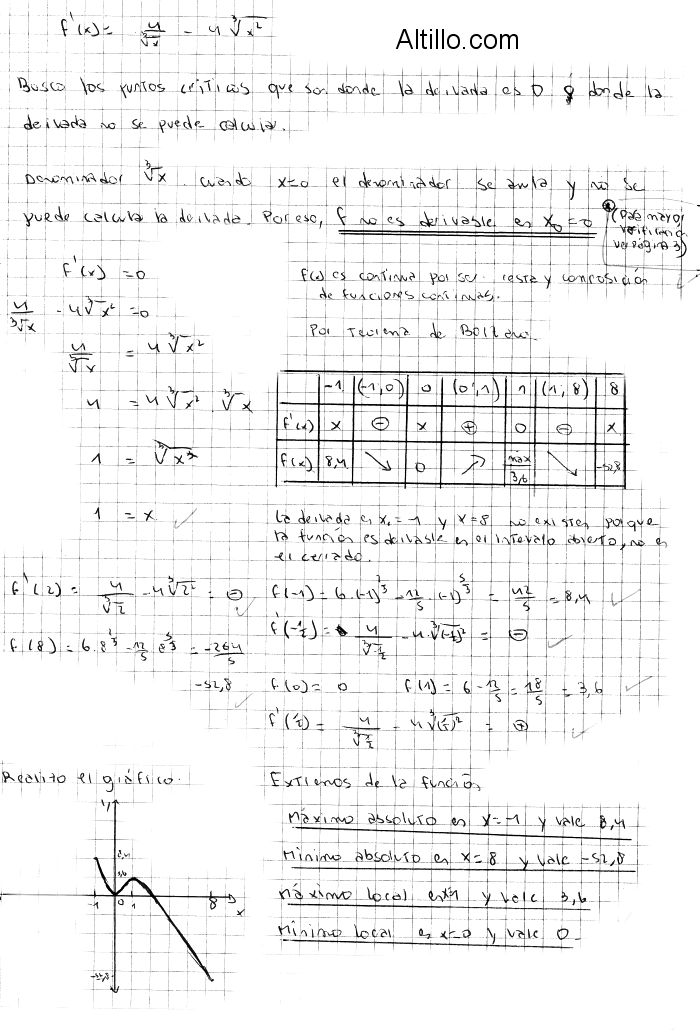 f'(x) = 4/∛x - 4∛x²
Altillo.com
Busco los puntos críticos que son donde la derivada es 0 ó donde la
derivada no se puede calcular.
Denominador ∛x cuando x=0 el denominador se anula y no se
puede calcular la derivada. Por eso, f no es derivable en x₀=0
(Para mayor
verificación
ver página 3)
f'(x) = 0
4/∛x - 4∛x² = 0
4/∛x = 4∛x²
4 = 4∛x² . ∛x
1 = ∛x³
1 = x
f(x) es continua por ser resta y composición
de funciones continuas.
Por Teorema de Bolzano.
-1 (-1,0) 0 (0,1) 1 (1,8) 8
f'(x) x ⊖ x ⊕ 0 ⊖ x
f(x) 8,4 ↘ 0 ↗ max/3,6 ↘ -52,8
La derivada en x=-1 y x=8 no existen porque
la función es derivable en el intervalo abierto, no en
el cerrado.
f'(2) = 4/∛2 - 4∛2² = ⊖
f(8) = 6.8^(2/3) - 12/5 8^(5/3) = -264/5
-52,8
f(-1) = 6.(-1)^(2/3) - 12/5.(-1)^(5/3) = 42/5 = 8,4
f'(-1/2) = 4/∛-1/2 - 4.∛(-1/2)² = ⊖
f(0) = 0 f(1) = 6 - 12/5 = 18/5 = 3,6
f'(1/2) = 4/∛1/2 - 4∛(1/2)² = ⊕
Realizo el gráfico.
y
8,4
3,6
-1 0 1 8 x
-52,8
Extremos de la función
Máximo absoluto en x=-1 y vale 8,4
Mínimo absoluto en x=8 y vale -52,8
Máximo local en x=1 y vale 3,6
Mínimo local en x=0 y vale 0